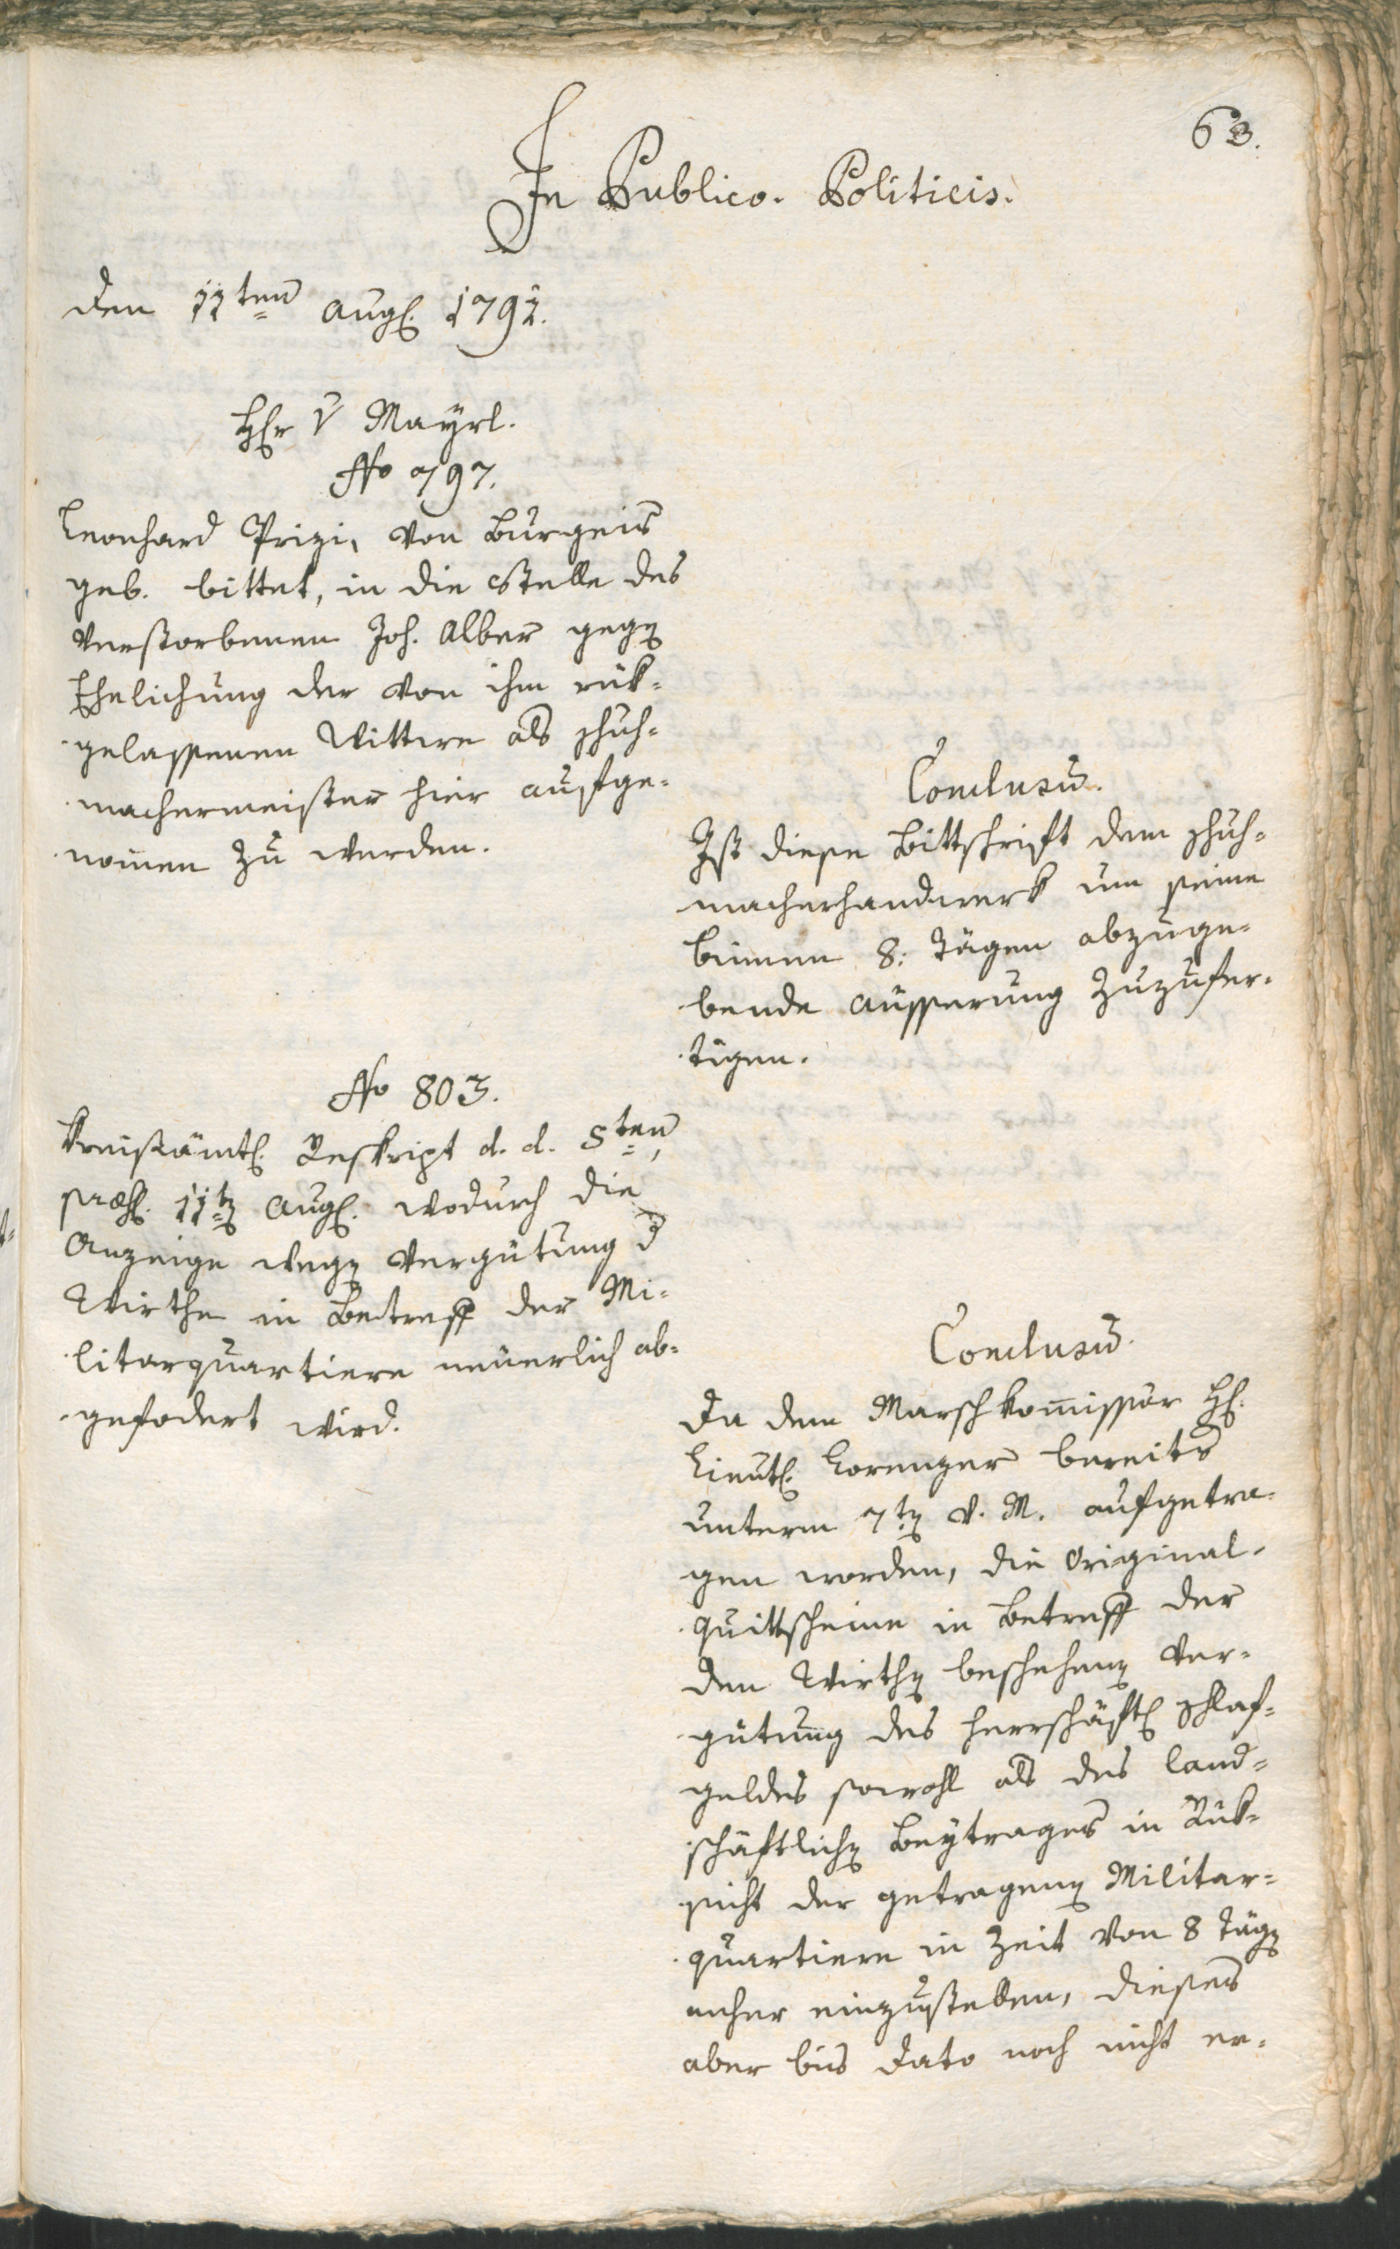 63.
In Publico. Politicis.
den 11ten Aug. 1792.
Hr v Mayrl.
No 797.
Leonhard Prizi, von Burgeis
geb. bittet, in die Stelle des
verstorbenen Joh. Alber gegen
Ehelichung der von ihm rük-
gelassenen Wittwe als Schuh-
machermeister hier aufge-
nom̄en zu werden.
Conclusum̄.
Ist diese Bittschrift dem Schuh-
macherhandwerk um seine
binnen 8: Tägen abzuge-
bende äusserung zuzufer-
tigen.
No 803.
Kreisämtl. Reskript d. d. 5ten,
praes. 11ten Aug. wodurch die
Anzeige wegen Vergütung d
Wirthe in Betreff der Mi-
litarquartiere neuerlich ab-
gefodert wird.
Conclusum̄.
Da dem Marschkom̄issär H.
Lieut. Lorenzer bereits
unterm 7ten v. M. aufgetra-
gen worden, die Original-
quittscheine in Betreff der
den Wirthen beschehenen Ver-
gütung des herrschäftl Schlaf-
geldes sowohl als des land-
schäftlichen Beytrages in Rük-
sicht der getragenen Militar-
quartiere in Zeit von 8 Tägen
anher einzustellen, dieses
aber bis dato noch nicht er-